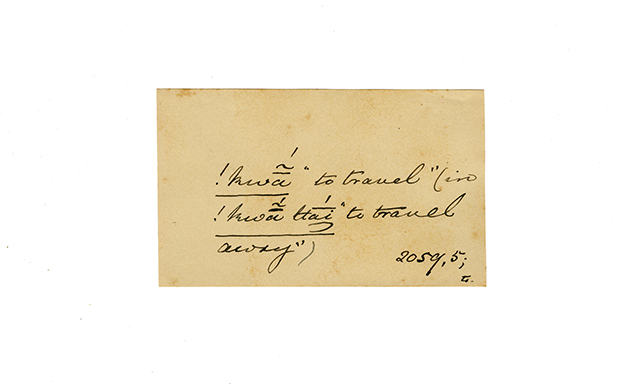 !kwā̃́ "to travel" (in
!kwā̃́ ttā́i "to travel
away")
2059,5;
L.